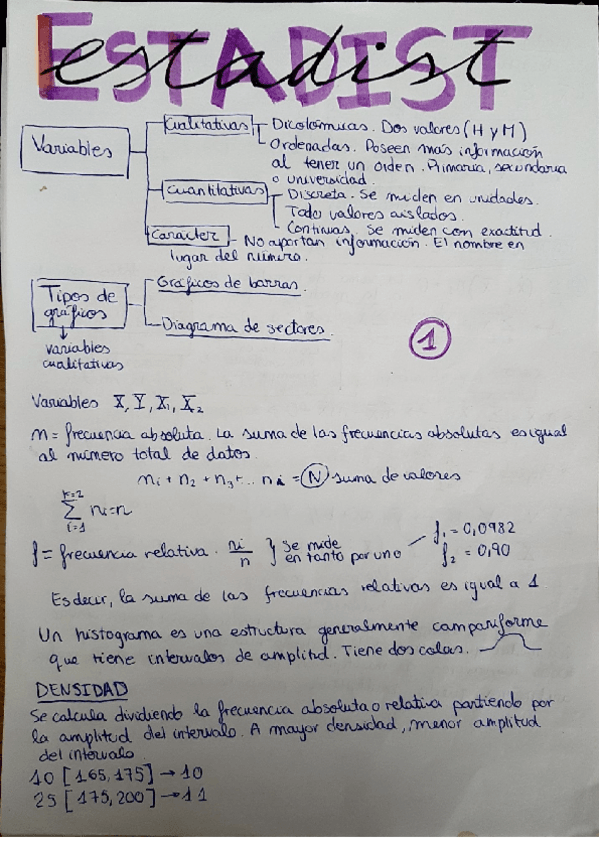 ESTADIST
estadist
Variables
Cualitativas
Dicotómicas. Dos valores (H y M)
Ordenadas. Poseen más información
al tener un orden. Primaria, secundaria
o universidad.
Cuantitativas
Discreta. Se miden en unidades.
Todo valores aislados.
Continuas. Se miden con exactitud.
Carácter - No aportan información. El nombre en
lugar del número.
Tipos de
gráficos
variables
cualitativas
Gráficos de barras.
Diagrama de sectores.
1
Variables X, Y, X₁, X₂
n = frecuencia absoluta. La suma de las frecuencias absolutas es igual
al número total de datos.
n₁ + n₂ + n₃ + ... ni = N suma de valores
k=2
∑ ni = n
i=1
f = frecuencia relativa. ni/n } se mide
en tanto por uno
f₁ = 0,0982
f₂ = 0,90
Es decir, la suma de las frecuencias relativas es igual a 1
Un histograma es una estructura generalmente campaniforme
que tiene intervalos de amplitud. Tiene dos colas.
DENSIDAD
Se calcula dividiendo la frecuencia absoluta o relativa partiendo por
la amplitud del intervalo. A mayor densidad, menor amplitud
del intervalo.
10 [165, 175] → 10
25 [175, 200] → 11